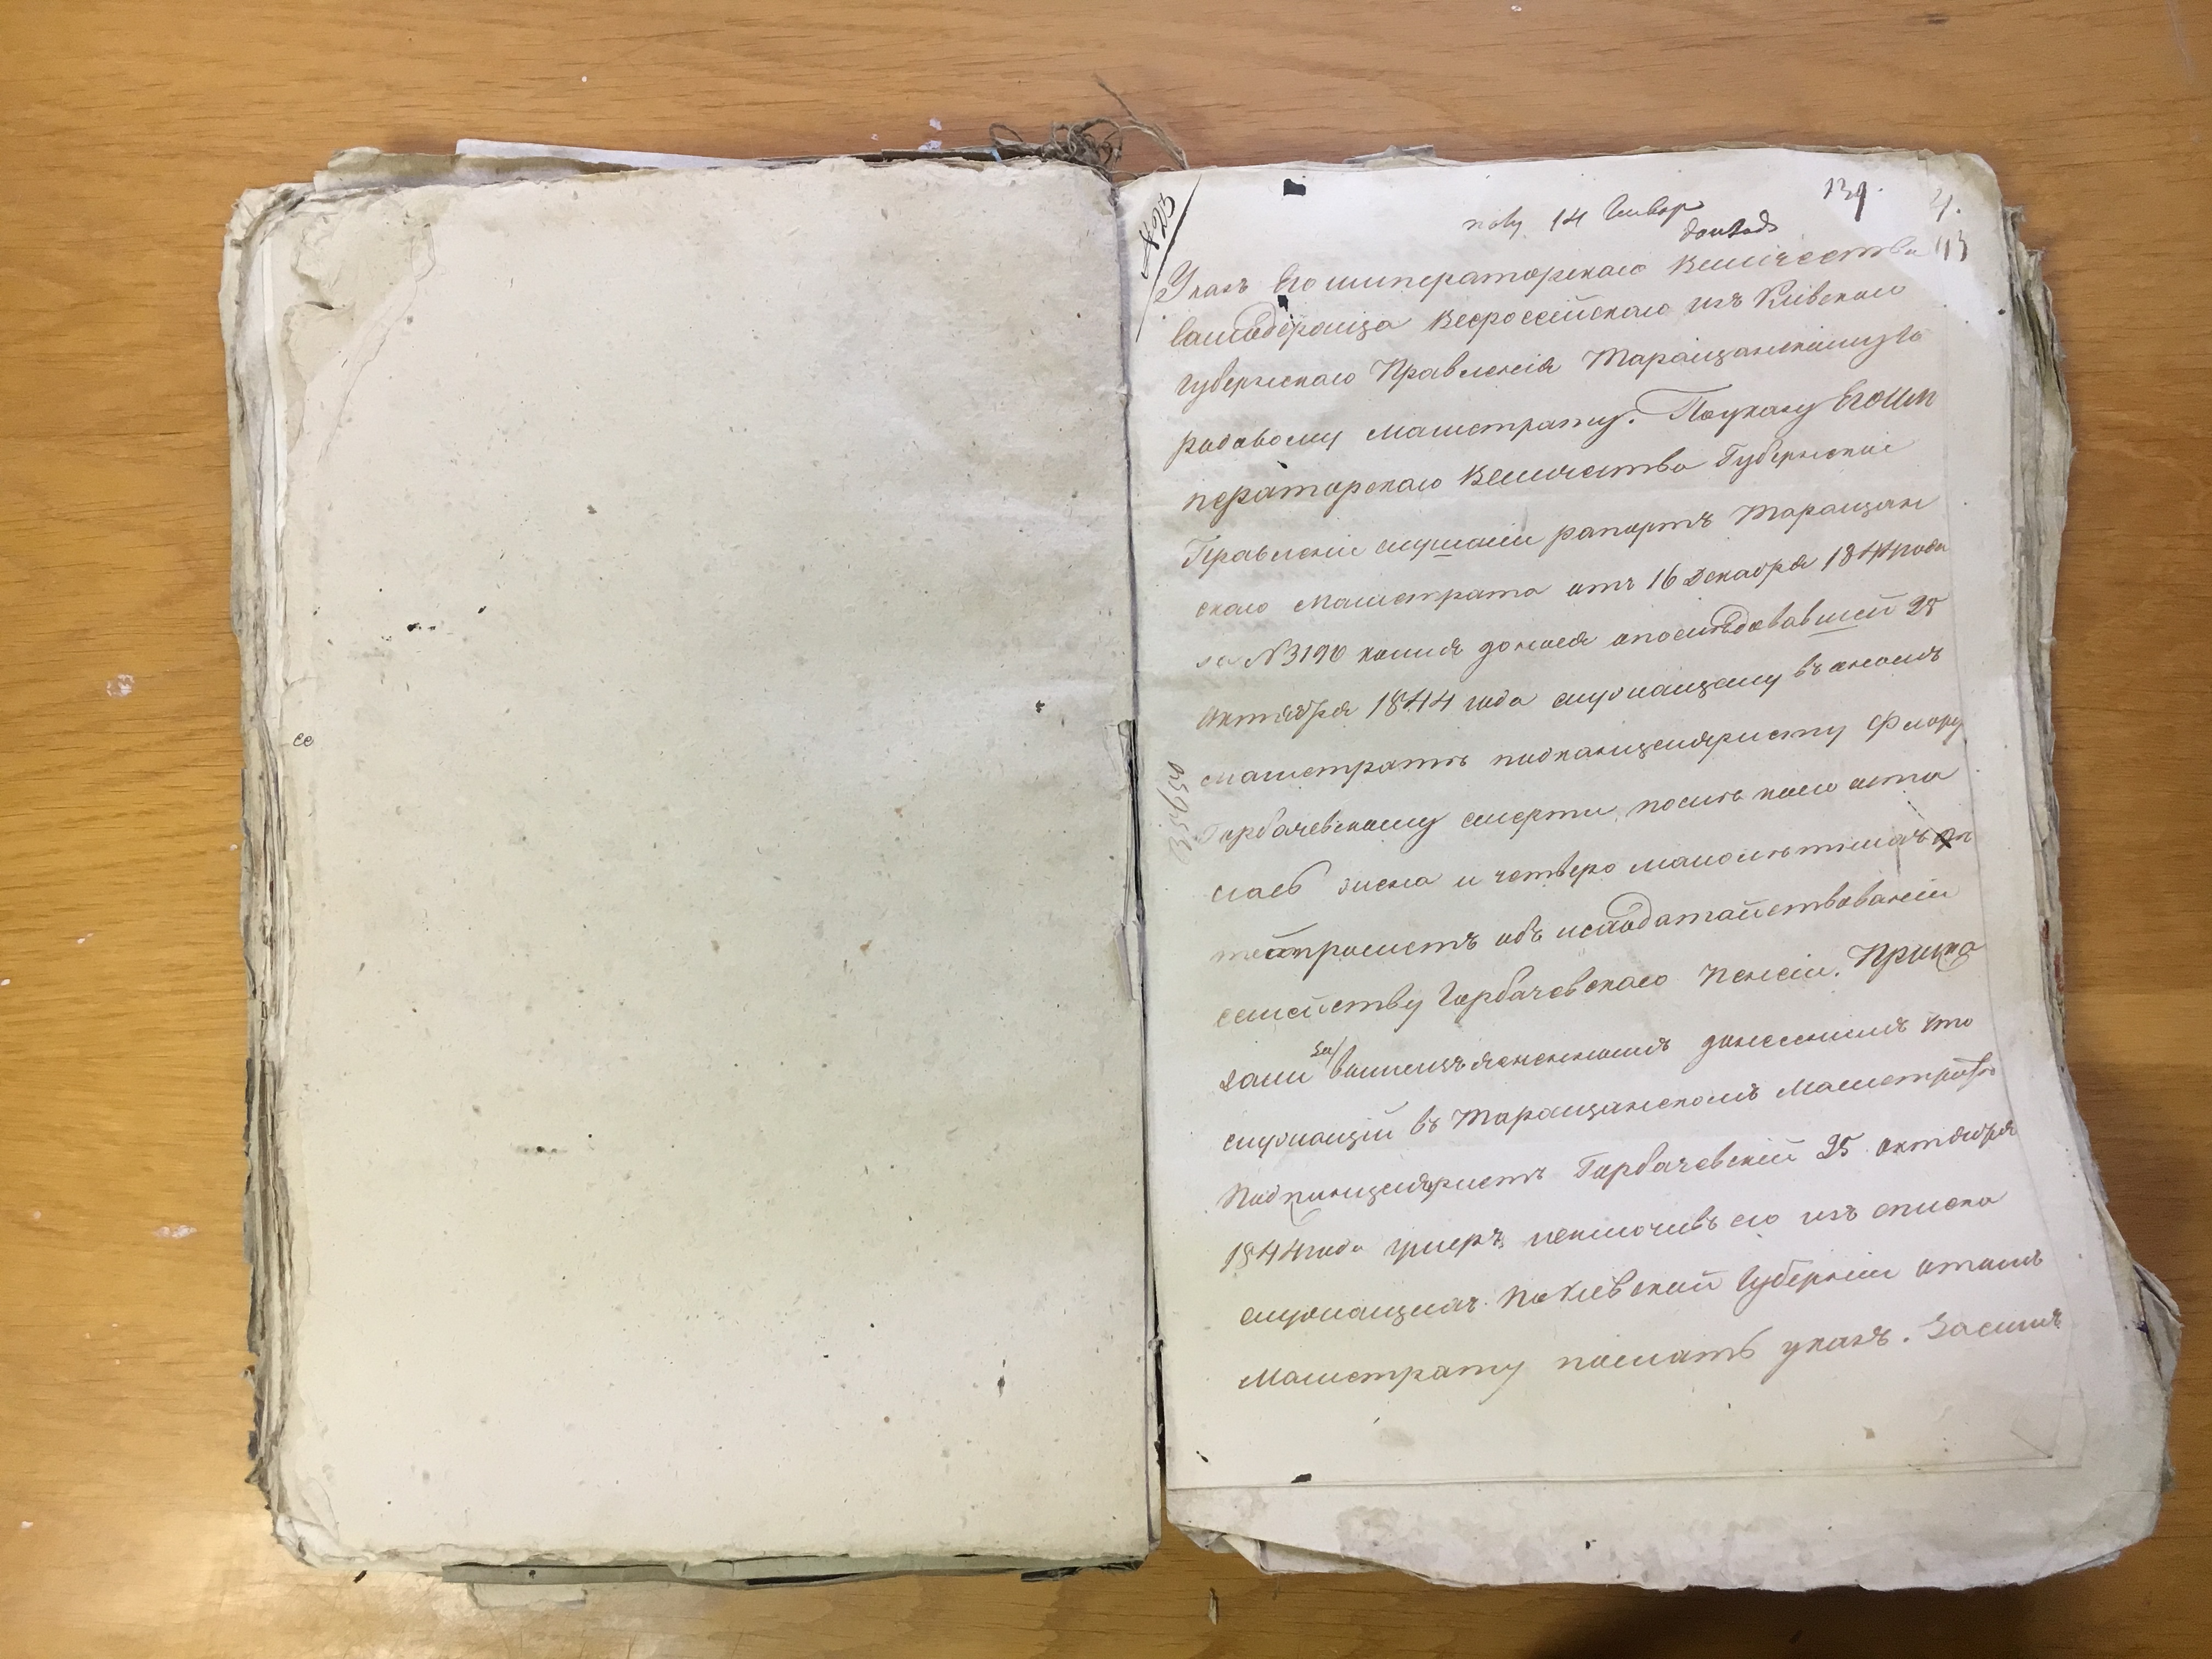 № 23
полу 14 Генвар 139. 4.
доклад 113
Указъ Его императорскаго Величества
самодержца Всероссійскаго изъ Кіевскаго
губернскаго Правленія Таращанскому го
родовому магистрату. По указу Его Им
ператорскаго Величества Губернское
Правленіе слушали рапортъ Таращан
скаго Магистрата отъ 16 декабря 1844 года
за № 3190 коимъ донося опоследовавшей 25
октября 1844 года служащему въ ономъ
магистрате подканцеляристу Флору
Горбачевскому смерти, после коего оста
лась жена и четверо малолетнихъ
проситъ объ исходатайствованіи
семейству Горбачевскаго пенсіи. Прика
зали За вышеизъясненнымъ донесеніемъ что
служащій въ Таращанскомъ Магистрате
Подканцеляристъ Горбачевскій 25 октября
1844 года умеръ, исключивъ его изъ списка
служащихъ по Кіевской Губерніи отомъ
Магистрату послать указъ. Засимъ
35650